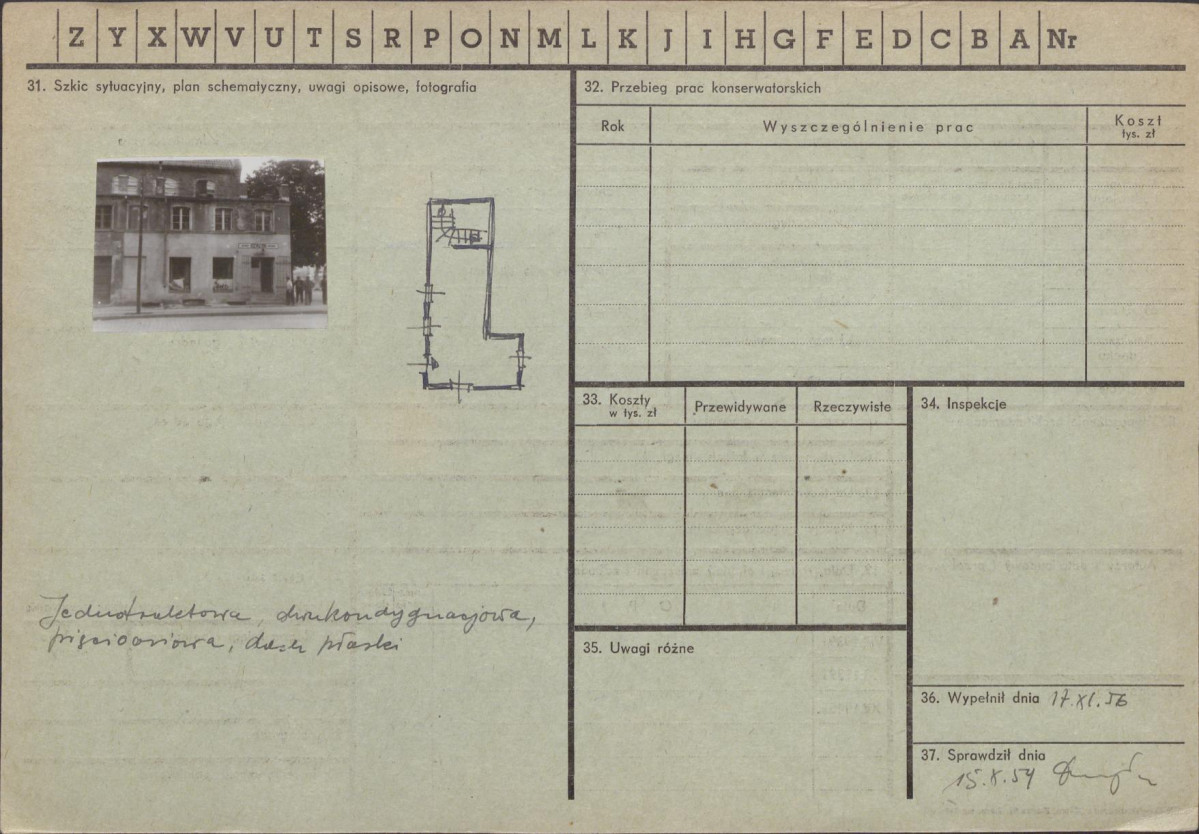 Z Y X W V U T S R P O N M L K J I H G F E D C B A Nr
31. Szkic sytuacyjny, plan schematyczny, uwagi opisowe, fotografia
Jednotraktowa, dwukondygnacjowa,
pięcioosiowa, dach płaski
32. Przebieg prac konserwatorskich
Rok Wyszczególnienie prac Koszt
tys. zł
33. Koszty
w tys. zł
Przewidywane Rzeczywiste
34. Inspekcje
35. Uwagi różne
36. Wypełnił dnia 17.XI.56
37. Sprawdził dnia
15.X.59